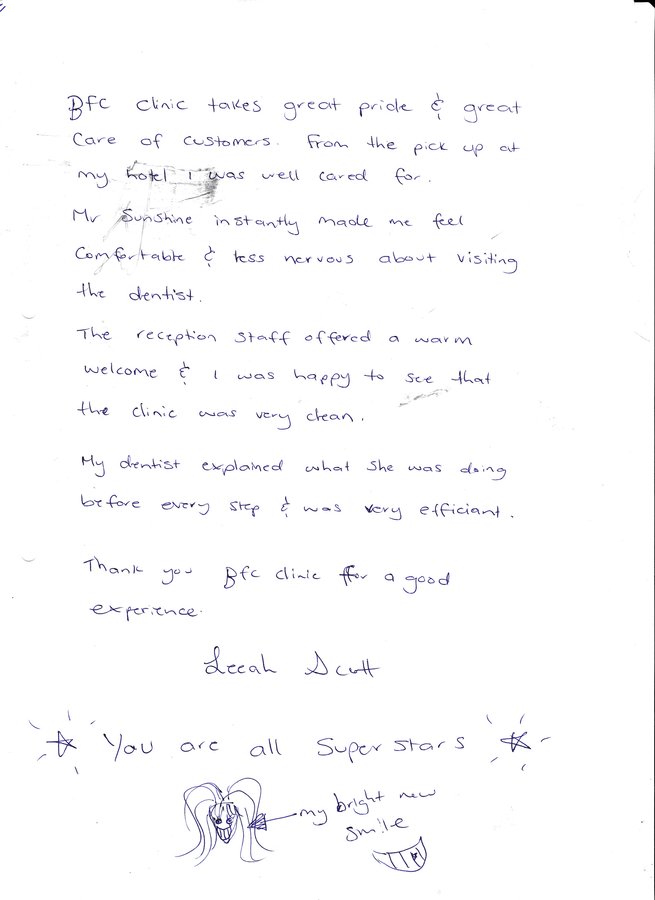 Bfc clinic takes great pride & great
Care of customers. From the pick up at
my hotel I was well cared for.
Mr Sunshine instantly made me feel
Comfortable & less nervous about visiting
the dentist.
The reception staff offered a warm
welcome & I was happy to see that
the clinic was very clean.
My dentist explained what she was doing
before every step & was very efficiant.
Thank you Bfc clinic for a good
experience.
Leeah Scott
You are all Super stars
my bright new
smile